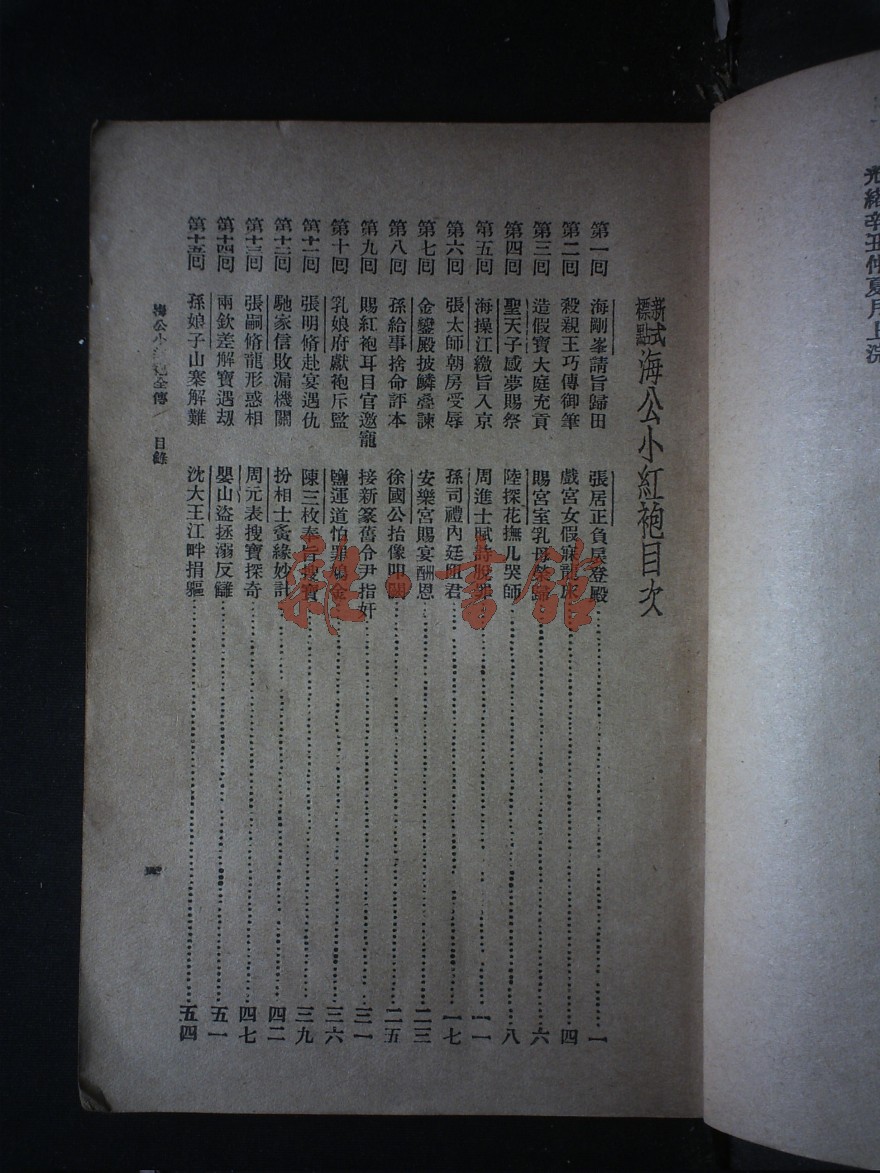 光緒辛丑仲夏月上浣
新式標點海公小紅袍目次
第一囘 海剛峯請旨歸田 張居正負扆登殿 一
第二囘 殺親王巧傳御筆 戲宮女假寐龍床 四
第三囘 造假寶大庭充貢 賜宮室乳母榮歸 六
第四囘 聖天子感夢賜祭 陸探花撫儿哭師 八
第五囘 海操江繳旨入京 周進士賦詩脫罪 一一
第六囘 張太師朝房受辱 孫司禮內廷阻君 一七
第七囘 金鑾殿披鱗疊諫 安樂宮賜宴酬恩 二三
第八囘 孫給事捨命評本 徐國公抬像叩閽 二五
第九囘 賜紅袍耳目官邀寵 接新篆舊令尹指奸 三一
第十囘 乳娘府獻袍斥監 鹽運道怕罪鴆金 三六
第十一囘 張明脩赴宴遇仇 陳三枚奉旨搜寶 三九
第十二囘 馳家信敗漏機關 扮相士夤緣妙計 四二
第十三囘 張嗣脩龍形惑相 周元表搜寶探奇 四七
第十四囘 兩欽差解寶遇刼 嬰山盜拯溺反讎 五一
第十五囘 孫娘子山寨解難 沈大王江畔捐軀 五四
海公小紅袍全傳 目錄
雜·書館